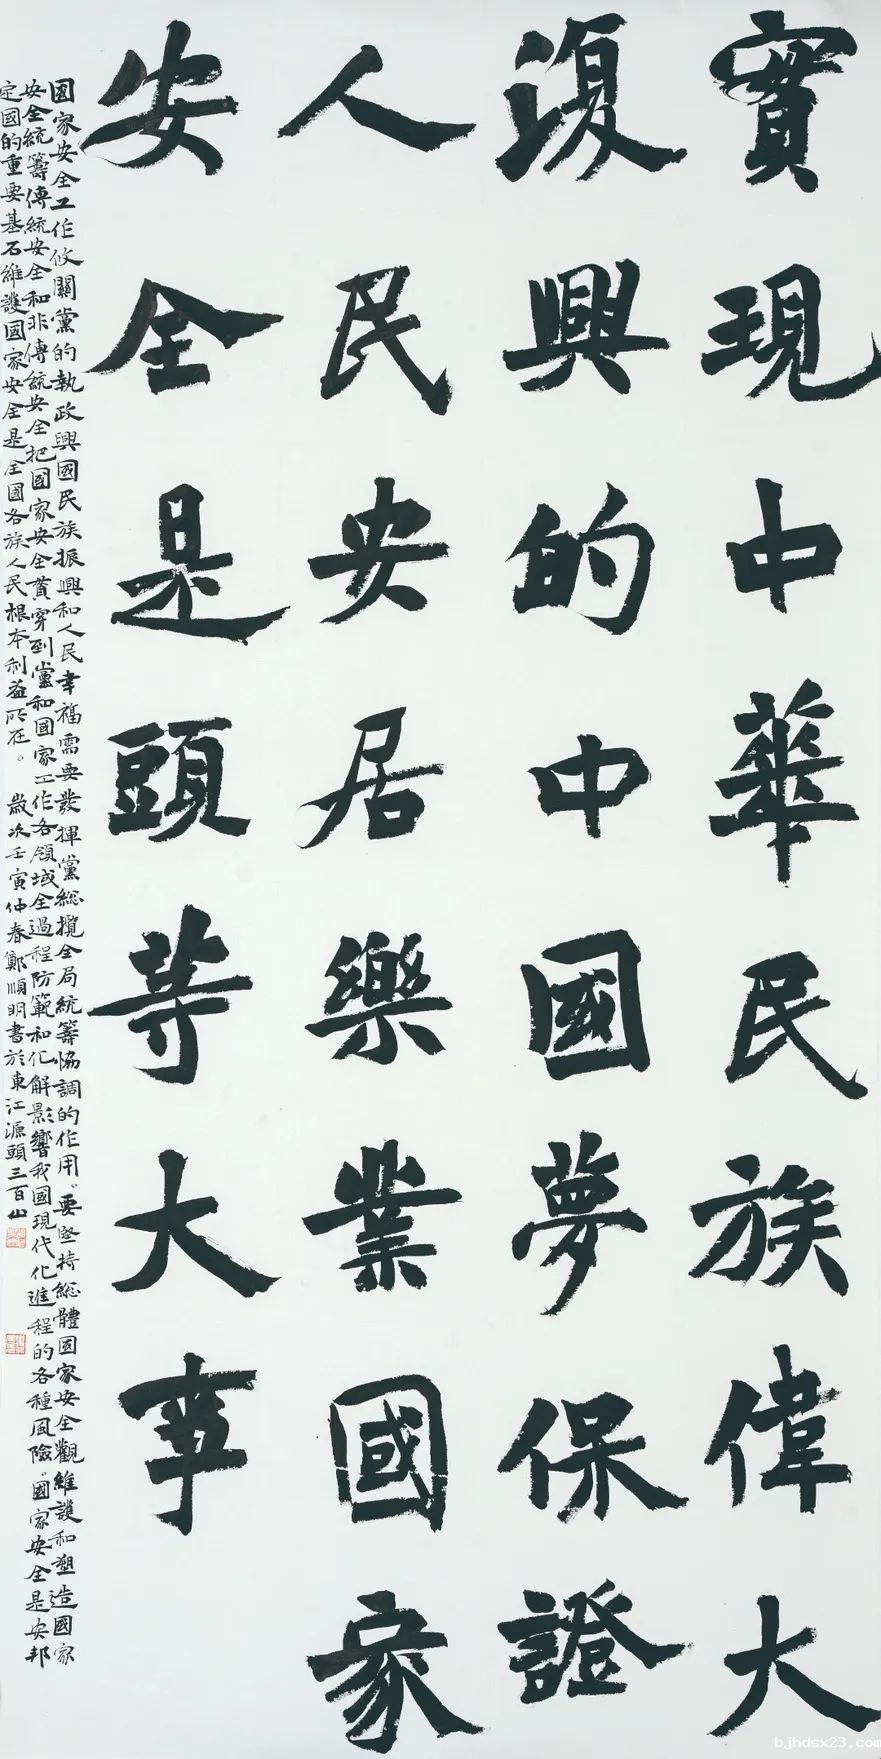 實現中華民族偉大
復興的中國夢保證
人民安居樂業國家
安全是頭等大事
國家安全工作攸關黨的執政興國民族振興和人民幸福需要發揮黨總攬全局統籌協調的作用。要堅持總體國家安全觀維護和塑造國家
安全統籌傳統安全和非傳統安全把國家安全貫穿到黨和國家工作各領域全過程防範和化解影響我國現代化進程的各種風險。國家安全是安邦
定國的重要基石維護國家安全是全國各族人民根本利益所在。歲次壬寅仲春鄭順明書於東江源頭三百山
bjhdsx23.com